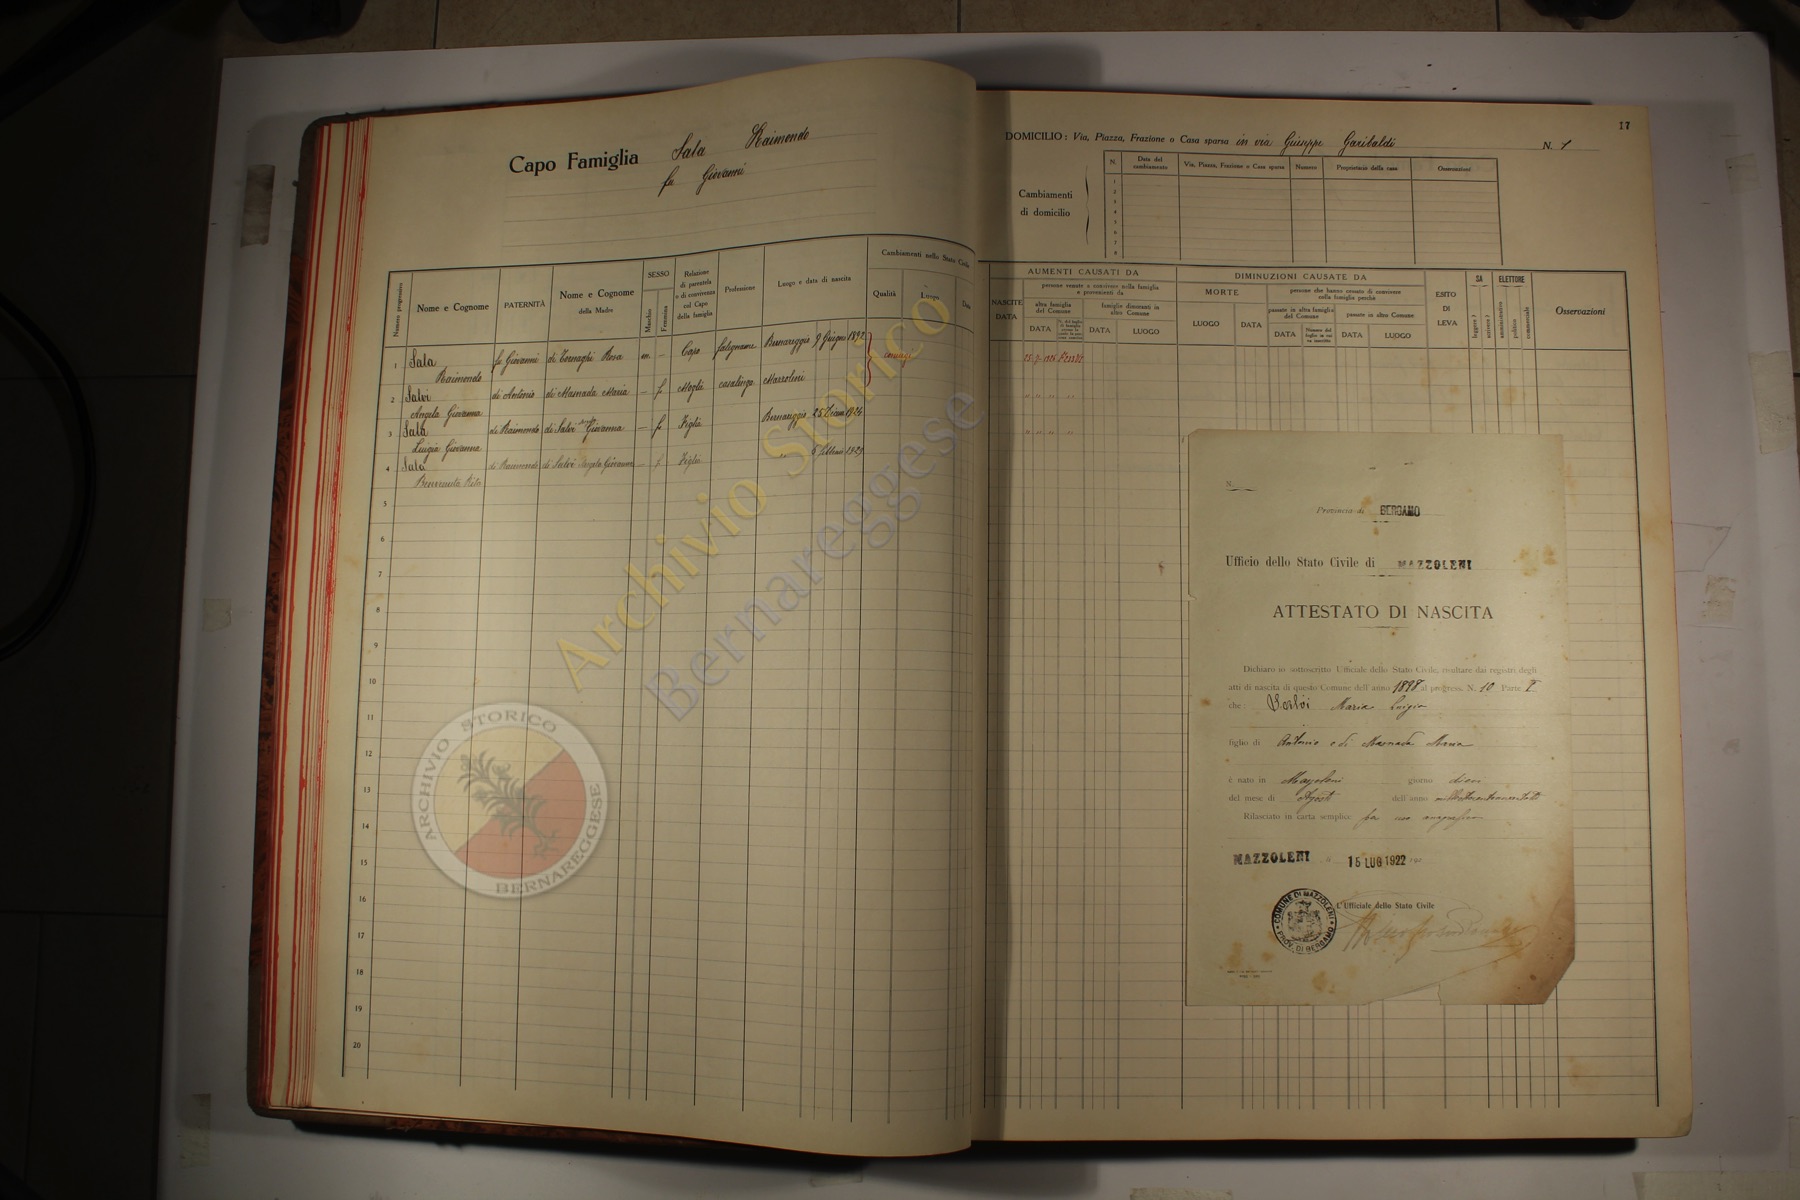 17
Capo Famiglia Sala Raimondo
fu Giovanni
DOMICILIO: Via, Piazza, Frazione o Casa sparsa in via Giuseppe Garibaldi N. 1
Cambiamenti
di domicilio
N. Data del cambiamento Via, Piazza, Frazione o Casa sparsa Numero Proprietario della casa Osservazioni
1
2
3
4
5
6
7
8
Numero progressivo
Nome e Cognome
PATERNITÀ
Nome e Cognome
della Madre
SESSO
Maschio
Femmina
Relazione
di parentela
o di convivenza
col Capo
della famiglia
Professione
Luogo e data di nascita
Cambiamenti nello Stato Civile
Qualità
Luogo
Data
1 Sala fu Giovanni di Tornaghi Rosa m. — Capo falegname Bernareggio 9 Giugno 1892 coniugi
Raimondo
2 Salvi di Antonio di Masnada Maria — f. Moglie casalinga Mazzolini
Angela Giovanna
3 Sala di Raimondo di Salvi Giovanna — f. Figlia Bernareggio 25
Luigia Giovanna
4 Sala di Raimondo di Salvi Angela Giovanna — f. Figlia
Benvenuta Rita
5
6
7
8
9
10
11
12
13
14
15
16
17
18
19
20
AUMENTI CAUSATI DA
NASCITE
DATA
persone venute a convivere nella famiglia
e provenienti da
altra famiglia
del Comune
DATA
famiglie dimoranti in
altro Comune
DATA
LUOGO
DIMINUZIONI CAUSATE DA
MORTE
LUOGO
DATA
persone che hanno cessato di convivere
nella famiglia perchè
passate in altra famiglia
del Comune
DATA
passate in altro Comune
DATA
LUOGO
ESITO
DI
LEVA
SA
leggere ?
scrivere ?
ELETTORE
amministrativo
politico
commerciale
Osservazioni
N.
Provincia di BERGAMO
Ufficio dello Stato Civile di MAZZOLENI
ATTESTATO DI NASCITA
Dichiaro io sottoscritto Ufficiale dello Stato Civile, risultare dai registri degli
atti di nascita di questo Comune dell'anno 1898 al progress. N. 10 Parte I
che: Maria Luigia
figlio di Antonio e di Masnada Maria
è nato in Mazzoleni giorno dieci
del mese di Agosto dell'anno
Rilasciato in carta semplice per uso anagrafico
MAZZOLENI 15 LUG 1922
L'Ufficiale dello Stato Civile
COMUNE DI MAZZOLENI
PROV. DI BERGAMO
Archivio Storico
Bernareggese
ARCHIVIO STORICO
BERNAREGGESE